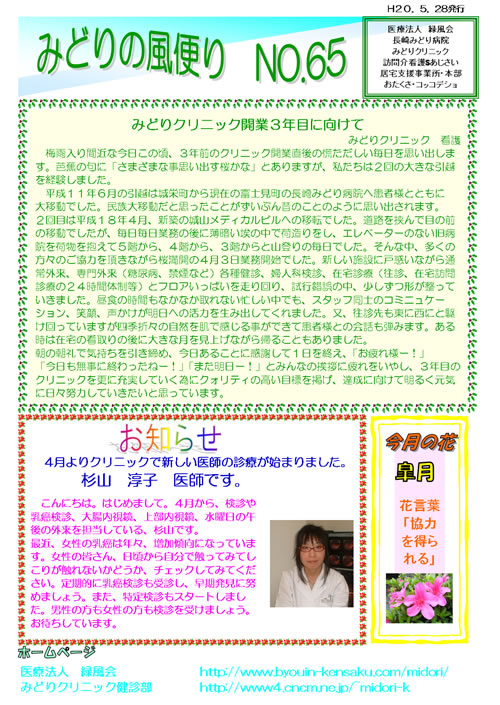 H20．5．28発行
みどりの風便り NO.65
医療法人 緑風会
長崎みどり病院
みどりクリニック
訪問介護Sあじさい
居宅支援事業所・本部
おたくさ・コッコデショ
みどりクリニック開業３年目に向けて
みどりクリニック 看護
梅雨入り間近な今日この頃、３年前のクリニック開業直後の慌ただしい毎日を思い出しま
す。芭蕉の句に「さまざまな事思い出す桜かな」とありますが、私たちは２回の大きな引越
を経験しました。
平成１１年６月の引越は城栄町から現在の富士見町の長崎みどり病院へ患者様とともに
大移動でした。民族大移動だと思ったことがずいぶん昔のことのように思い出されます。
２回目は平成１８年４月、新築の城山メディカルビルへの移転でした。道路を挟んで目の前
の移動でしたが、毎日毎日業務の後に薄暗い埃の中で荷造りをし、エレベーターのない旧病
院を荷物を抱えて５階から、４階から、３階からと山登りの毎日でした。そんな中、多くの
方々のご協力を頂きながら桜満開の４月３日業務開始でした。新しい施設に戸惑いながら通
常外来、専門外来（糖尿病、禁煙など）各種健診、婦人科検診、在宅診療（往診、在宅訪問
診療の２４時間体制等）とフロアいっぱいを走り回り、試行錯誤の中、少しずつ形が整って
いきました。昼食の時間もなかなか取れない忙しい中でも、スタッフ同士のコミニュケー
ション、笑顔、声かけが明日への活力を生み出してくれました。又、往診先も東に西にと駆
け回っていますが四季折々の自然を肌で感じる事ができて患者様との会話も弾みます。ある
時は在宅の看取りの後に大きな月を見上げながら帰ることもありました。
朝の朝礼で気持ちを引き締め、今日あることに感謝して１日を終え、「お疲れ様ー！」
「今日も無事に終わったねー！」「また明日ー！」とみんなの挨拶に疲れをいやし、３年目の
クリニックを更に充実していく為にクォリティの高い目標を掲げ、達成に向けて明るく元気
に日々努力していきたいと思っています。
お知らせ
４月よりクリニックで新しい医師の診療が始まりました。
杉山 淳子 医師です。
こんにちは。はじめまして。４月から、検診や
乳癌検診、大腸内視鏡、上部内視鏡、水曜日の午
後の外来を担当している、杉山です。
最近、女性の乳癌は年々、増加傾向になっていま
す。女性の皆さん、日頃から自分で触ってみてし
こりが触れないかどうか、チェックしてみてくだ
さい。定期的に乳癌検診も受診し、早期発見に努
めましょう。また、特定検診もスタートしまし
た。男性の方も女性の方も検診を受けましょう。
お待ちしています。
今月の花
皐月
花言葉
「協力
を得ら
れる」
ホームページ
医療法人 緑風会 http://www.byouin-kensaku.com/midori/
みどりクリニック健診部 http://www4.cncm.ne.jp/~midori-k